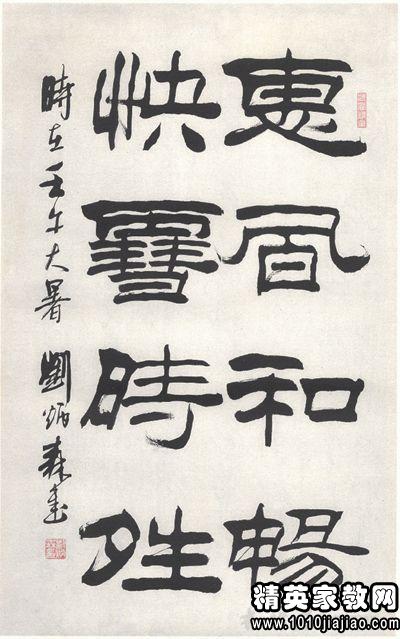 惠風和暢
快雪時夝
時在壬午大暑 劉炳森書
精英家教网
www.1010jiajiao.com